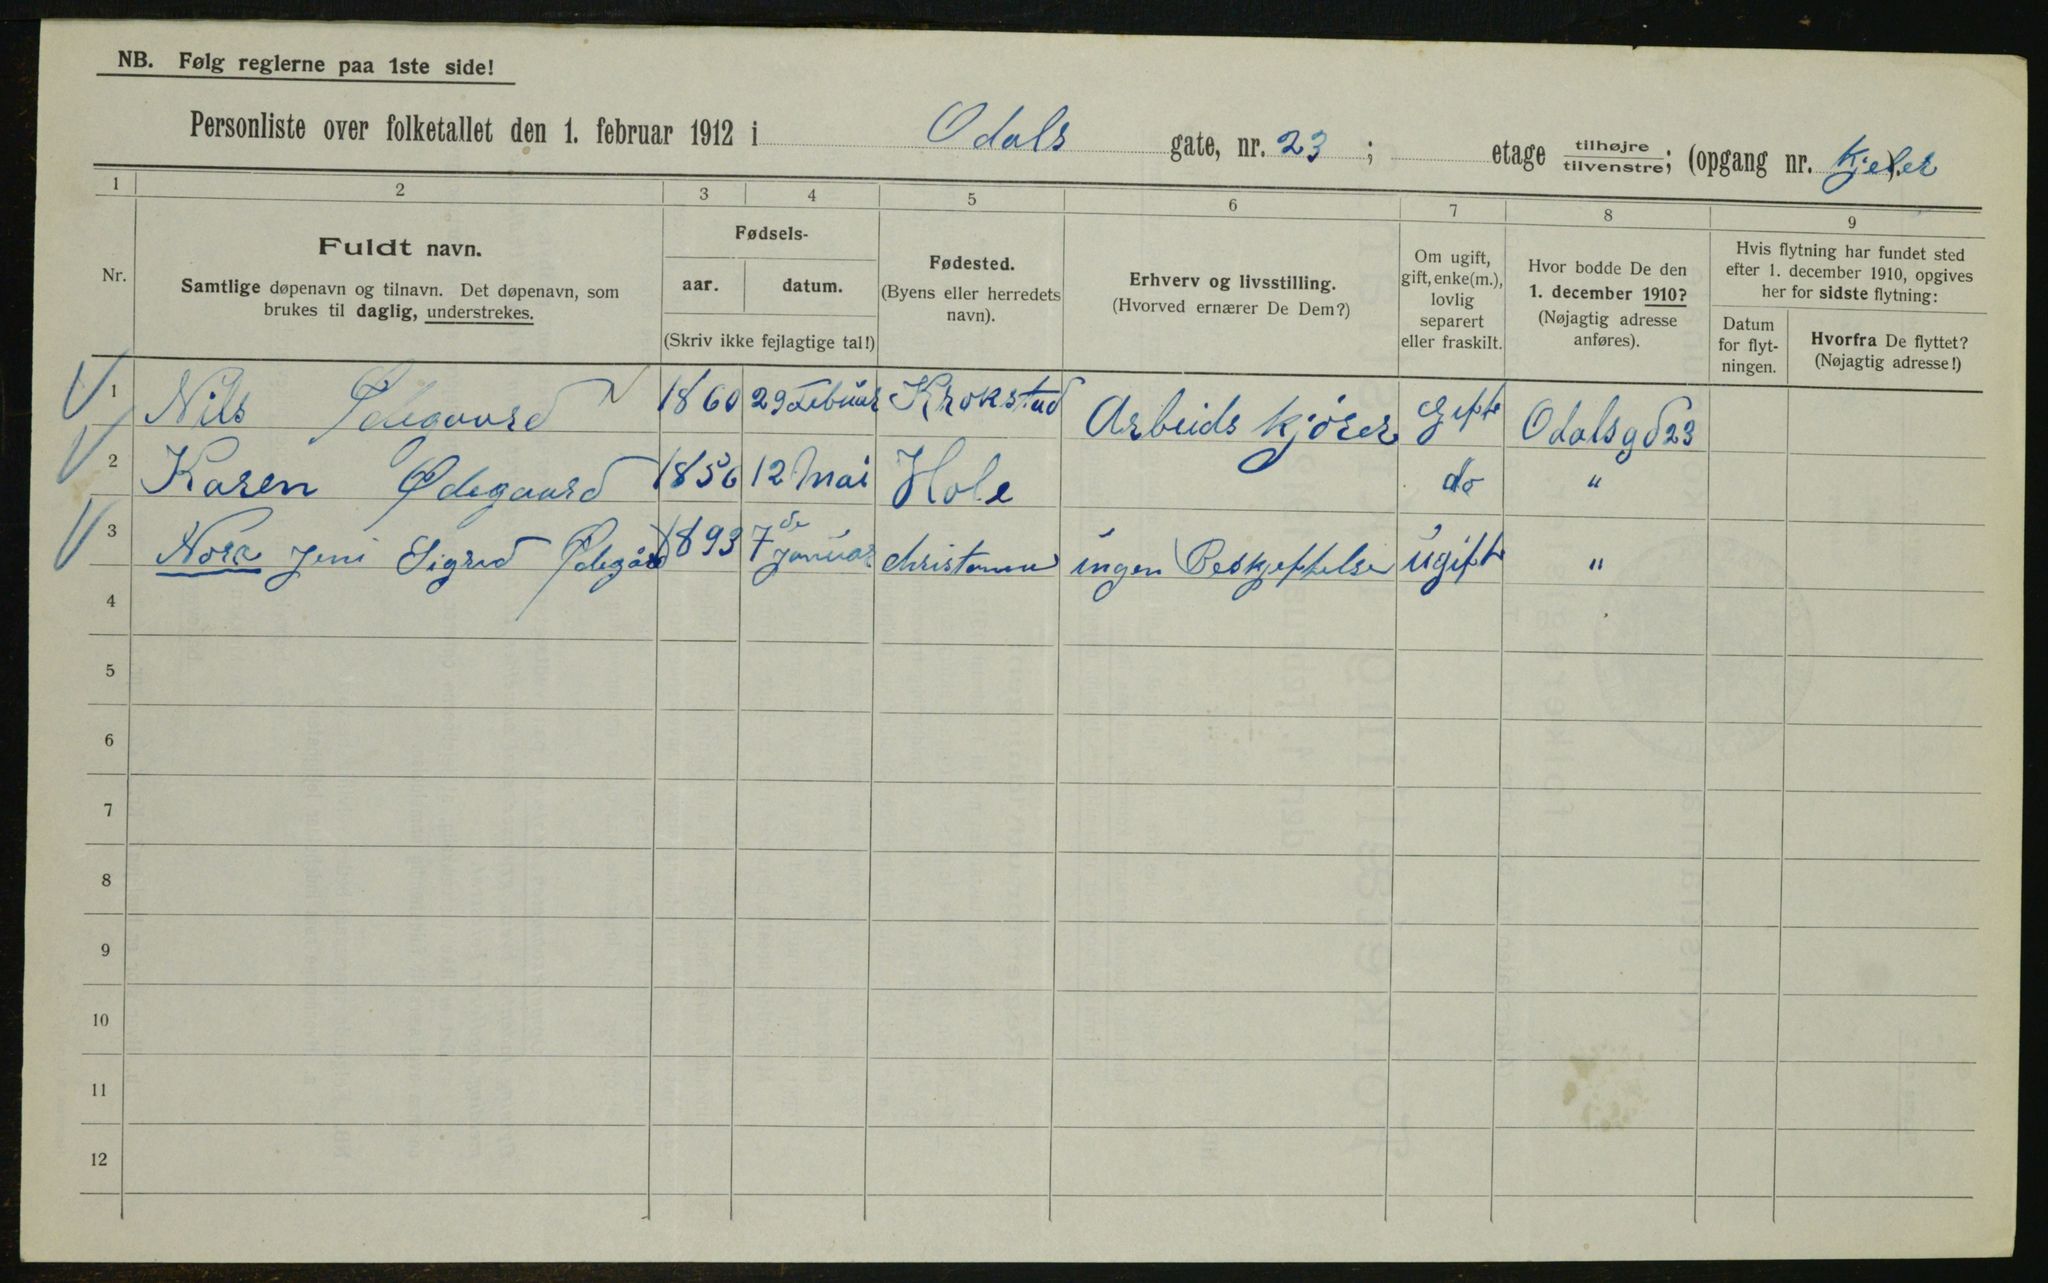 NB. Følg reglerne paa 1ste side!
Personliste over folketallet den 1. februar 1912 i Odals gate, nr. 23 ; etage tilhøjre/tilvenstre; (opgang nr. Kjeler).
1 2 3 4 5 6 7 8 9
Nr.
Fuldt navn.
Samtlige døpenavn og tilnavn. Det døpenavn, som
brukes til daglig, understrekes.
Fødsels-
aar. datum.
(Skriv ikke fejlagtige tal!)
Fødested.
(Byens eller herredets
navn).
Erhverv og livsstilling.
(Hvorved ernærer De Dem?)
Om ugift,
gift, enke(m.),
lovlig
separert
eller fraskilt.
Hvor bodde De den
1. december 1910?
(Nøjagtig adresse
anføres).
Hvis flytning har fundet sted
efter 1. december 1910, opgives
her for sidste flytning:
Datum
for flyt-
ningen.
Hvorfra De flyttet?
(Nøjagtig adresse!)
1 Nils Ødegaard 1860 29 Februar Krokstad Arbeids kjører Gift Odalsgd 23
2 Karen Ødegaard 1856 12 Mai Hole do "
3 Nora Jeni Sigrid Ødegård 1893 7de Januar christania ingen Beskjeftelse ugift "
4
5
6
7
8
9
10
11
12